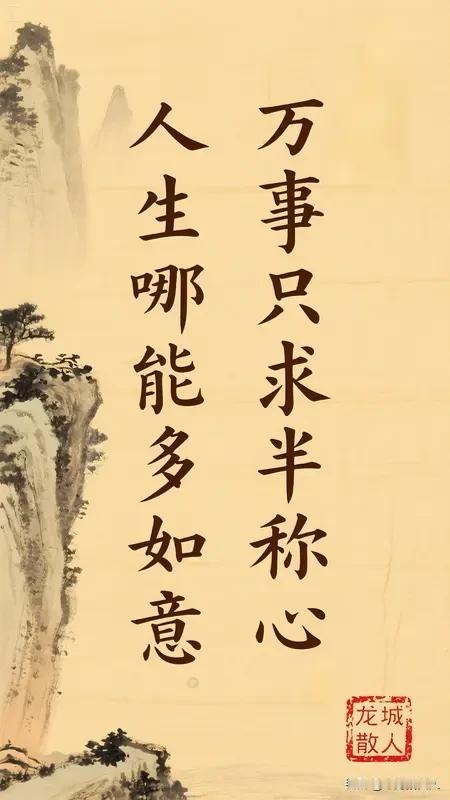 万事只求半称心
人生哪能多如意
龙城
散人